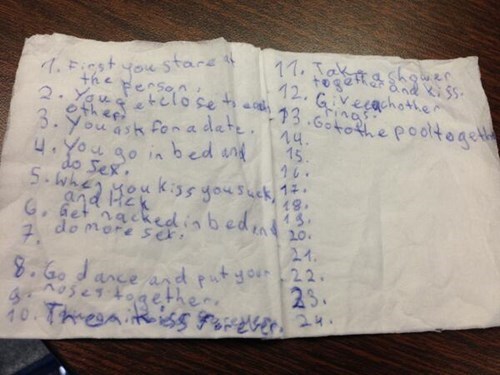 1. First you stare at
the person.
2. You get close to each
other.
3. You ask for a date.
4. You go in bed and
do sex.
5. When you kiss you suck
and lick
6. Get nacked in bed and
7. do more sex.
8. Go dance and put your
9. noses together.
10. kiss forever.
11. Take a shower
together and kiss.
12. Give eachother
13. rings.
Go to the pool together
14.
15.
16.
17.
18.
19.
20.
21.
22.
23.
24.